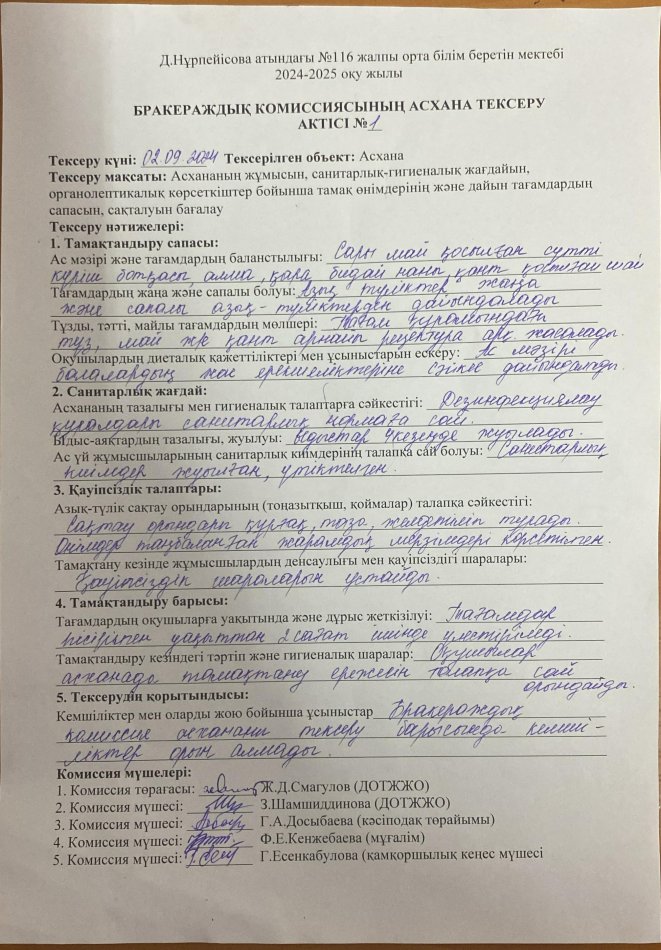 Д.Нұрпейісова атындағы №116 жалпы орта білім беретін мектебі
2024-2025 оқу жылы
БРАКЕРАЖДЫҚ КОМИССИЯСЫНЫҢ АСХАНА ТЕКСЕРУ
АКТІСІ № 1
Тексеру күні: 02.09.2024 Тексерілген объект: Асхана
Тексеру мақсаты: Асхананың жұмысын, санитарлық-гигиеналық жағдайын,
органолептикалық көрсеткіштер бойынша тамақ өнімдерінің және дайын тағамдардың
сапасын, сақталуын бағалау
Тексеру нәтижелері:
1. Тамақтандыру сапасы:
Ас мәзірі және тағамдардың баланстылығы: Сары май қосылған сүтті
күріш ботқасы, алма, қара бидай наны, қант қосылған шай
Тағамдардың жаңа және сапалы болуы: Азық түліктер жаңа
және сапалы азық-түліктерден дайындалады
Тұзды, тәтті, майлы тағамдардың мөлшері: Тағам құрамындағы
тұз, май және қант арнайы рецептура арқ. жасалады.
Оқушылардың диеталық қажеттіліктері мен ұсыныстарын ескеру: Ас мәзірі
балалардың жас ерекшеліктеріне сәйкес дайындалады.
2. Санитарлық жағдай:
Асхананың тазалығы мен гигиеналық талаптарға сәйкестігі: Дезинфекциялау
құралдары санитарлық нормаға сай.
Ыдыс-аяқтардың тазалығы, жуылуы: ыдыстар 4 кезеңде жуылады.
Ас үй жұмысшыларының санитарлық киімдерінің талапқа сай болуы: Санитарлық
киімдер жуылған, үтіктелген.
3. Қауіпсіздік талаптары:
Азық-түлік сақтау орындарының (тоңазытқыш, қоймалар) талапқа сәйкестігі:
Сақтау орындары құрғақ, таза, желдетіліп тұрады.
Өнімдер таңбаланған жарамдық мерзімдері көрсетілген.
Тамақтану кезінде жұмысшылардың денсаулығы мен қауіпсіздігі шаралары:
Қауіпсіздік шараларын ұстайды.
4. Тамақтандыру барысы:
Тағамдардың оқушыларға уақытында және дұрыс жеткізілуі: Тағамдар
пісірілген уақыттан 2 сағат ішінде үлестіріледі.
Тамақтандыру кезіндегі тәртіп және гигиеналық шаралар: Оқушылар
асханада тамақтану ережесін талапқа сай
орындайды.
5. Тексерудің қорытындысы:
Кемшіліктер мен оларды жою бойынша ұсыныстар Бракераждық
комиссия асхананы тексеру барысында кемші-
ліктер орын алмады.
Комиссия мүшелері:
1. Комиссия төрағасы: Ж.Д.Смагулов (ДОТЖЖО)
2. Комиссия мүшесі: З.Шамшиддинова (ДОТЖЖО)
3. Комиссия мүшесі: Г.А.Досыбаева (кәсіподақ төрайымы)
4. Комиссия мүшесі: Ф.Е.Кенжебаева (мұғалім)
5. Комиссия мүшесі: Г.Есенкабулова (қамқоршылық кеңес мүшесі